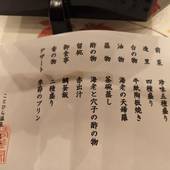 前菜　珍味五種盛り
造里　四種盛り
台の物　牛紙陶板焼き
油物　海老の天婦羅
蒸物　茶碗蒸し
酢の物　海老と穴子の酢の物
留椀　赤出汁
御食事　鯛釜飯
香の物　二種盛り
デザート　季節のプリン